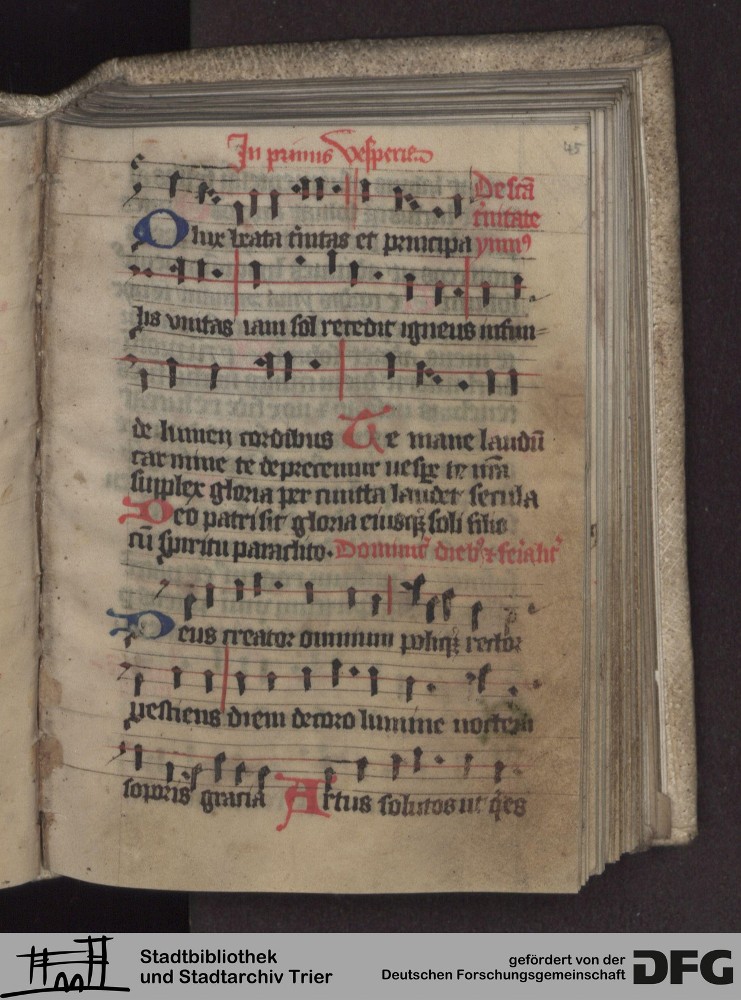 In primis vesperis
45
De scā
t'nitate
O lux beata t'nitas et principa ymn9
lis vnitas iam sol recedit igneus infun=
de lumen cordibus Te mane laudū
carmine te deprecemur uespe te nr̄a
supplex gloria per cuncta laudet secula
Deo patri sit gloria eiusq3 soli filio
cū spiritu paraclito. Dominic' dieb9 et ferialib9
Deus creator omnium poliq3 rector
vestiens diem decoro lumine noctem
soporis gracia Artus solutos ut q'es
Stadtbibliothek
und Stadtarchiv Trier
gefördert von der
Deutschen Forschungsgemeinschaft
DFG